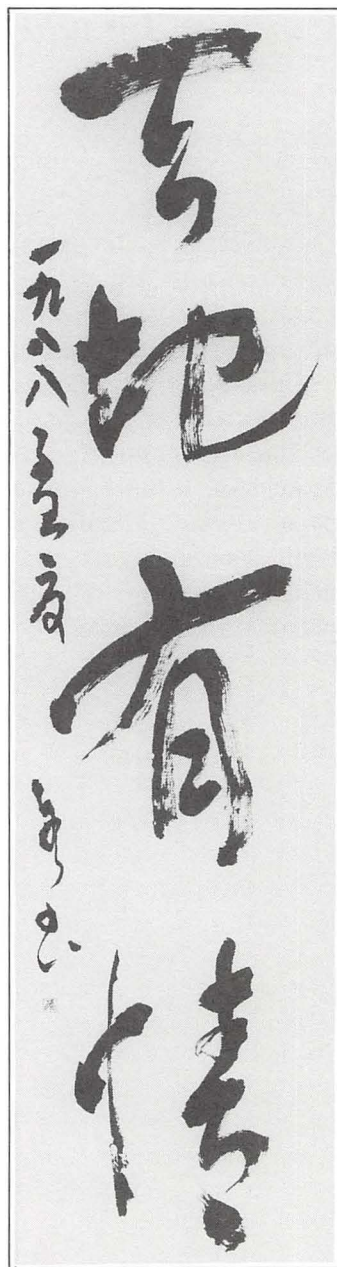 天地有情
一九八八
书